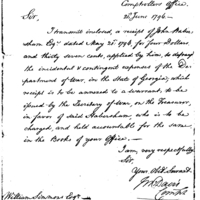 Comptrollers Office.
25 June 1796.
Sir,
I transmit inclosed, a receipt of John Haber-
sham Esqr dated May 21. 1796 for four Dollars
and thirty seven cents, applied by him, to defray
the incidental & contingent expences of the De-
partment of war, in the State of Georgia; which
receipt is to be annexed to a warrant, to be
issued by the Secretary of war, on the Treasurer,
in favor of said Habersham, who is to be
charged, and held accountable for the same
in the Books of your Office.
I am, very respectfully
Sir,
Your Obt. Servant
Comptr.
William Simmons Esqr